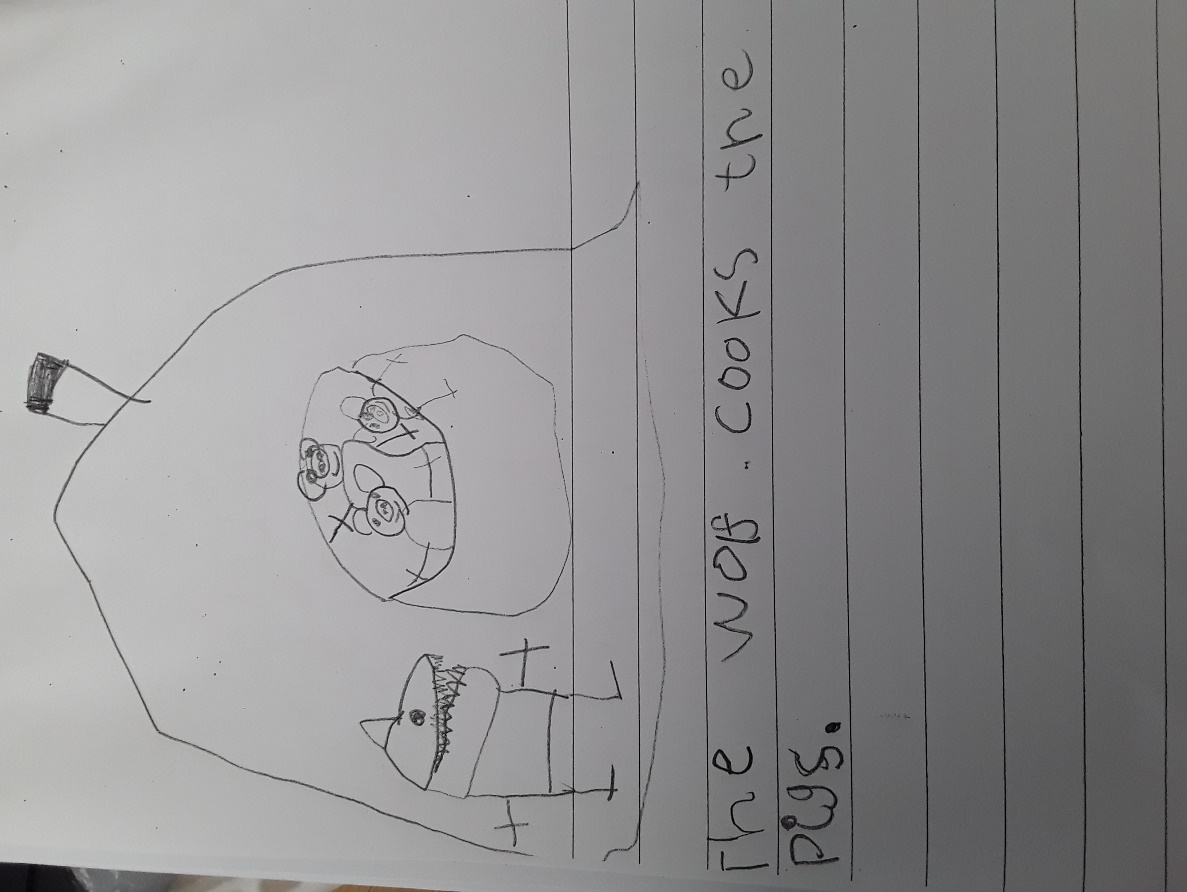 The wolf. cooks the
pigs.